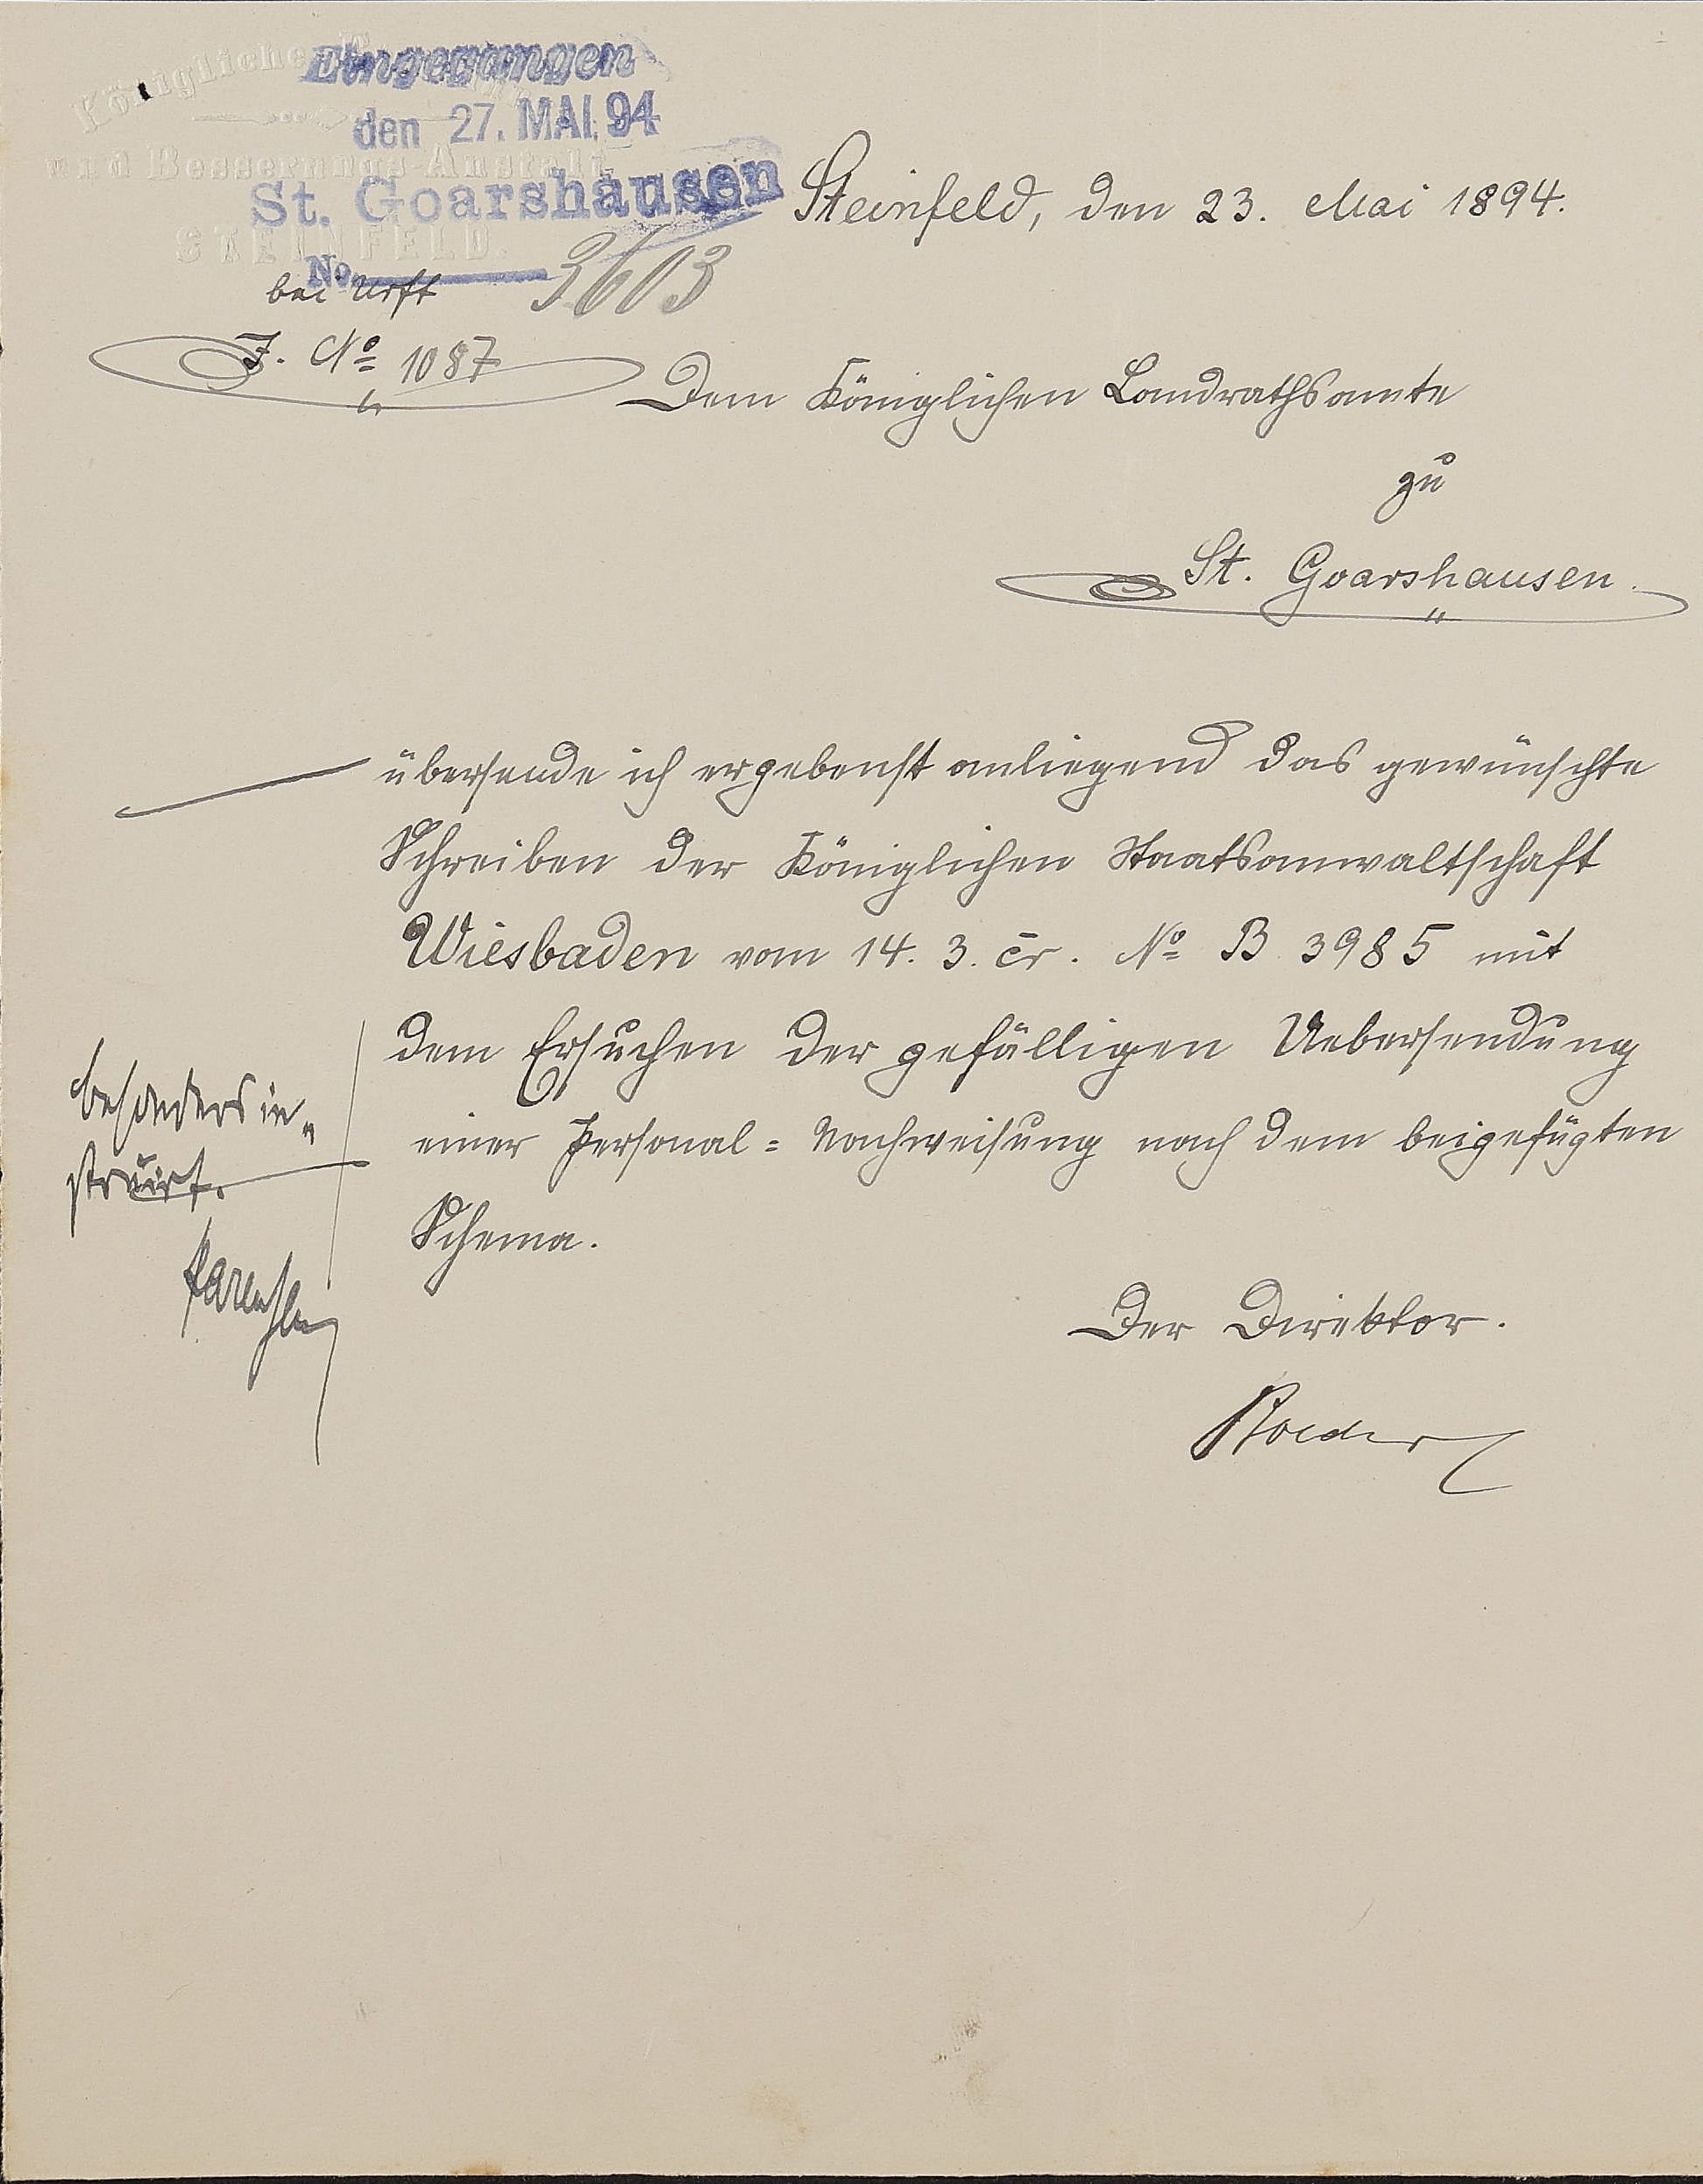 Königliche
und Besserungs-Anstalt
STEINFELD.
Eingegangen
den 27. MAI 94
St. Goarshausen
No. 3603
bei Urft
J. No 1087
Steinfeld, den 23. Mai 1894.
Dem Königlichen Landrathsamte
zu
St. Goarshausen.
übersende ich ergebenst anliegend das gewünschte
Schreiben der Königlichen Staatsanwaltschaft
Wiesbaden vom 14. 3. cr. No B 3985 mit
dem Ersuchen der gefälligen Uebersendung
einer Personal = Nachweisung nach dem beigefügten
Schema.
Der Direktor.
Roeder
besonders in„
struirt.